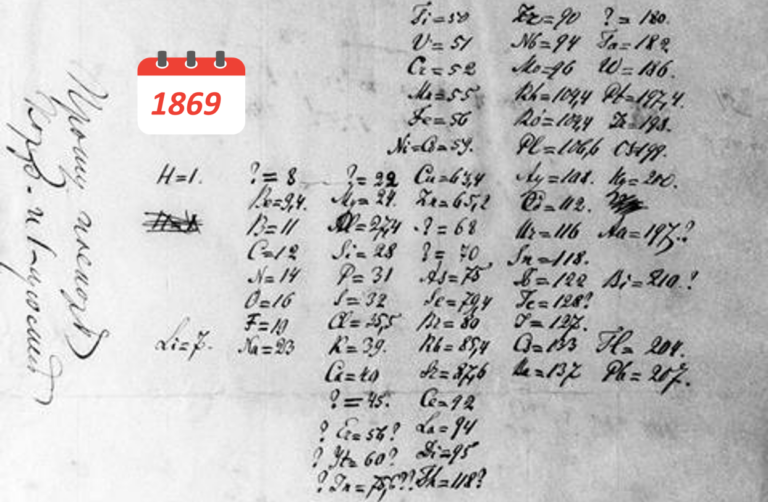 1869
Ti=50 Zr=90 ?=180.
V=51 Nb=94 Ta=182
Cr=52 Mo=96 W=186.
Mn=55 Rh=104,4 Pt=197,4.
Fe=56 Ro=104,4 Ir=198.
Ni=Co=59. Pl=106,6 Os=199.
H=1. ?=8 ?=22 Cu=63,4 Ag=108. Hg=200.
Be=9,4. Mg=24. Zn=65,2 Cd=112.
B=11 Al=27,4 ?=68 Ur=116 Au=197?
C=12 Si=28 ?=70 Sn=118.
N=14 P=31 As=75 Sb=122 Bi=210?
O=16 S=32 Se=79,4 Te=128?
F=19 Cl=35,5 Br=80 J=127.
Li=7. Na=23 K=39. Rb=85,4 Cs=133 Tl=204.
Ca=40 Sr=87,6 Ba=137 Pb=207.
?=45. Ce=92
? Er=56? La=94
? Yt=60? Di=95
? In=75,6?? Th=118?